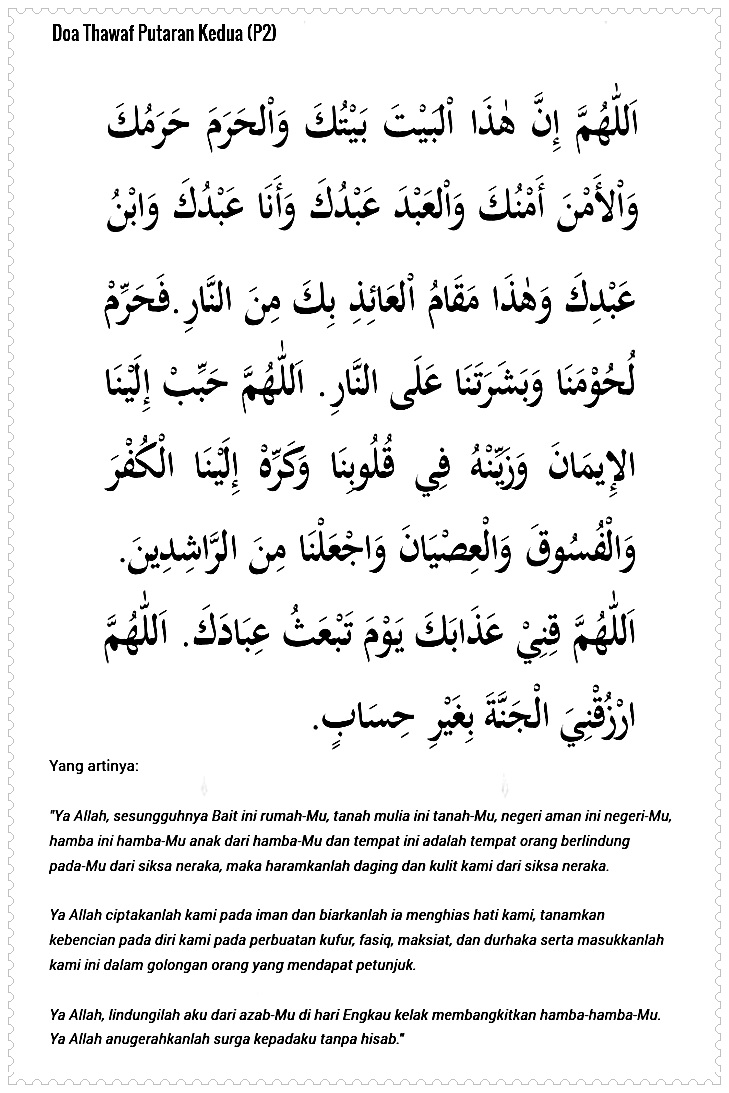 Doa Thawaf Putaran Kedua (P2)
اَللّٰهُمَّ إِنَّ هٰذَا الْبَيْتَ بَيْتُكَ وَالْحَرَمَ حَرَمُكَ
وَالْأَمْنَ أَمْنُكَ وَالْعَبْدَ عَبْدُكَ وَأَنَا عَبْدُكَ وَابْنُ
عَبْدِكَ وَهٰذَا مَقَامُ الْعَائِذِ بِكَ مِنَ النَّارِ.فَحَرِّمْ
لُحُوْمَنَا وَبَشَرَتَنَا عَلَى النَّارِ. اَللّٰهُمَّ حَبِّبْ إِلَيْنَا
الإِيمَانَ وَزَيِّنْهُ فِي قُلُوبِنَا وَكَرِّهْ إِلَيْنَا الْكُفْرَ
وَالْفُسُوقَ وَالْعِصْيَانَ وَاجْعَلْنَا مِنَ الرَّاشِدِينَ.
اَللّٰهُمَّ قِنِيْ عَذَابَكَ يَوْمَ تَبْعَثُ عِبَادَكَ. اَللّٰهُمَّ
ارْزُقْنِيَ الْجَنَّةَ بِغَيْرِ حِسَابٍ.
Yang artinya:
"Ya Allah, sesungguhnya Bait ini rumah-Mu, tanah mulia ini tanah-Mu, negeri aman ini negeri-Mu,
hamba ini hamba-Mu anak dari hamba-Mu dan tempat ini adalah tempat orang berlindung
pada-Mu dari siksa neraka, maka haramkanlah daging dan kulit kami dari siksa neraka.
Ya Allah ciptakanlah kami pada iman dan biarkanlah ia menghias hati kami, tanamkan
kebencian pada diri kami pada perbuatan kufur, fasiq, maksiat, dan durhaka serta masukkanlah
kami ini dalam golongan orang yang mendapat petunjuk.
Ya Allah, lindungilah aku dari azab-Mu di hari Engkau kelak membangkitkan hamba-hamba-Mu.
Ya Allah anugerahkanlah surga kepadaku tanpa hisab."